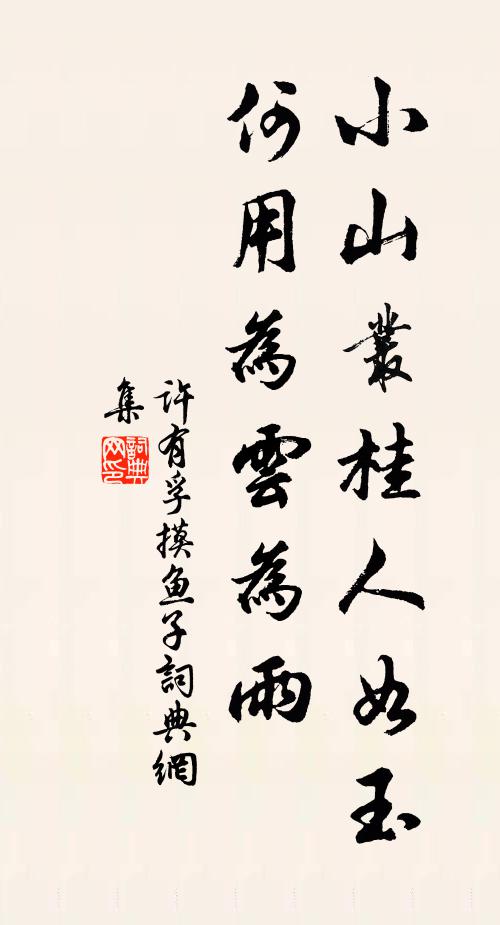 小山叢桂人如玉
何用為雲為雨
許有孚摸魚子詞典網
集
詞典网印